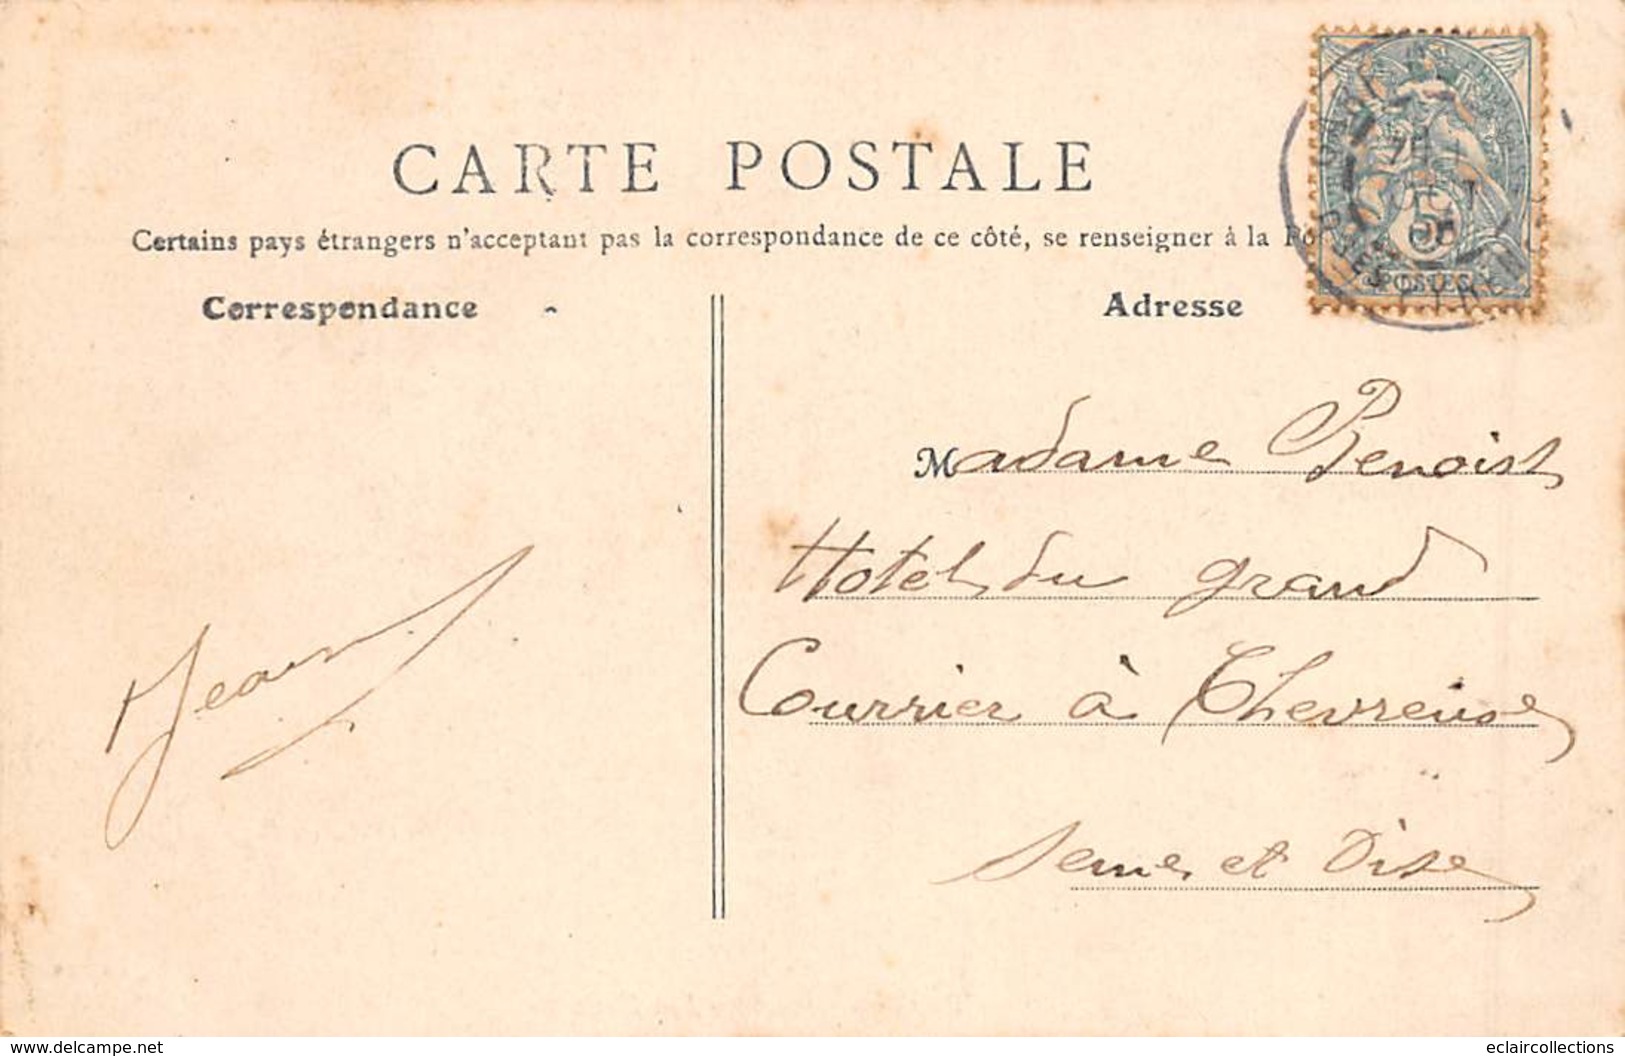 CARTE POSTALE
Certains pays étrangers n'acceptant pas la correspondance de ce côté, se renseigner à la Po
Correspondance
Adresse
Madame Benoist
Hotel du grand
Courrier à Chevreuse
Seine et Oise
Jean
5
POSTES
www.delcampe.net
eclaircollections